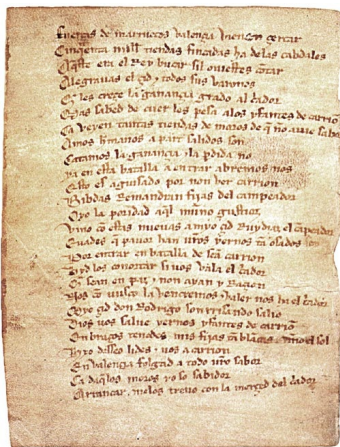 fuerças de marruecos valençia vienen çercar
Cinquenta mill tiendas fincadas ha de las cabdales
Aqueste era el Rey bucar sil ouiestes cõtar
Alegrauas el çid & todos sus varones
Q les creçe la ganançia grado al cador
Mas sabed de cuer les pesa alos yfantes de carriõ
Ca veyen tantas tiendas de moros de q non auie sabor
Amos hmanos a part salidos son
Catamos la ganançia & la pdida no
ya en esta batalla a entrar abremos nos
Esto es aguisado por non ver carrion
Bibdas Remandran fijas del campeador
Oyo la poridad aql muño gustioz
Vino cõ estas nueuas a myo çid Ruydiaz el cãpeador
Euades q pauor han uros yernos tã osados son
Por entrar en batalla desean carrion
Yd los conortar si uos vala el cador
Q sean en paz & non ayan y Raçion
Nos cõ uusco la vençremos & valer nos ha el cador
Myo çid don Rodrigo sonrrisando salio
Dios uos salue yernos yfantes de carriõ
En braços tenedes mis fijas tã blancas cõmo el sol
Hyo desseo lides & uos a carrion
En valençia folgad a todo uro sabor
Ca daqlos moros yo so sabidor
Arrancar melos treuo con la merçed del cador